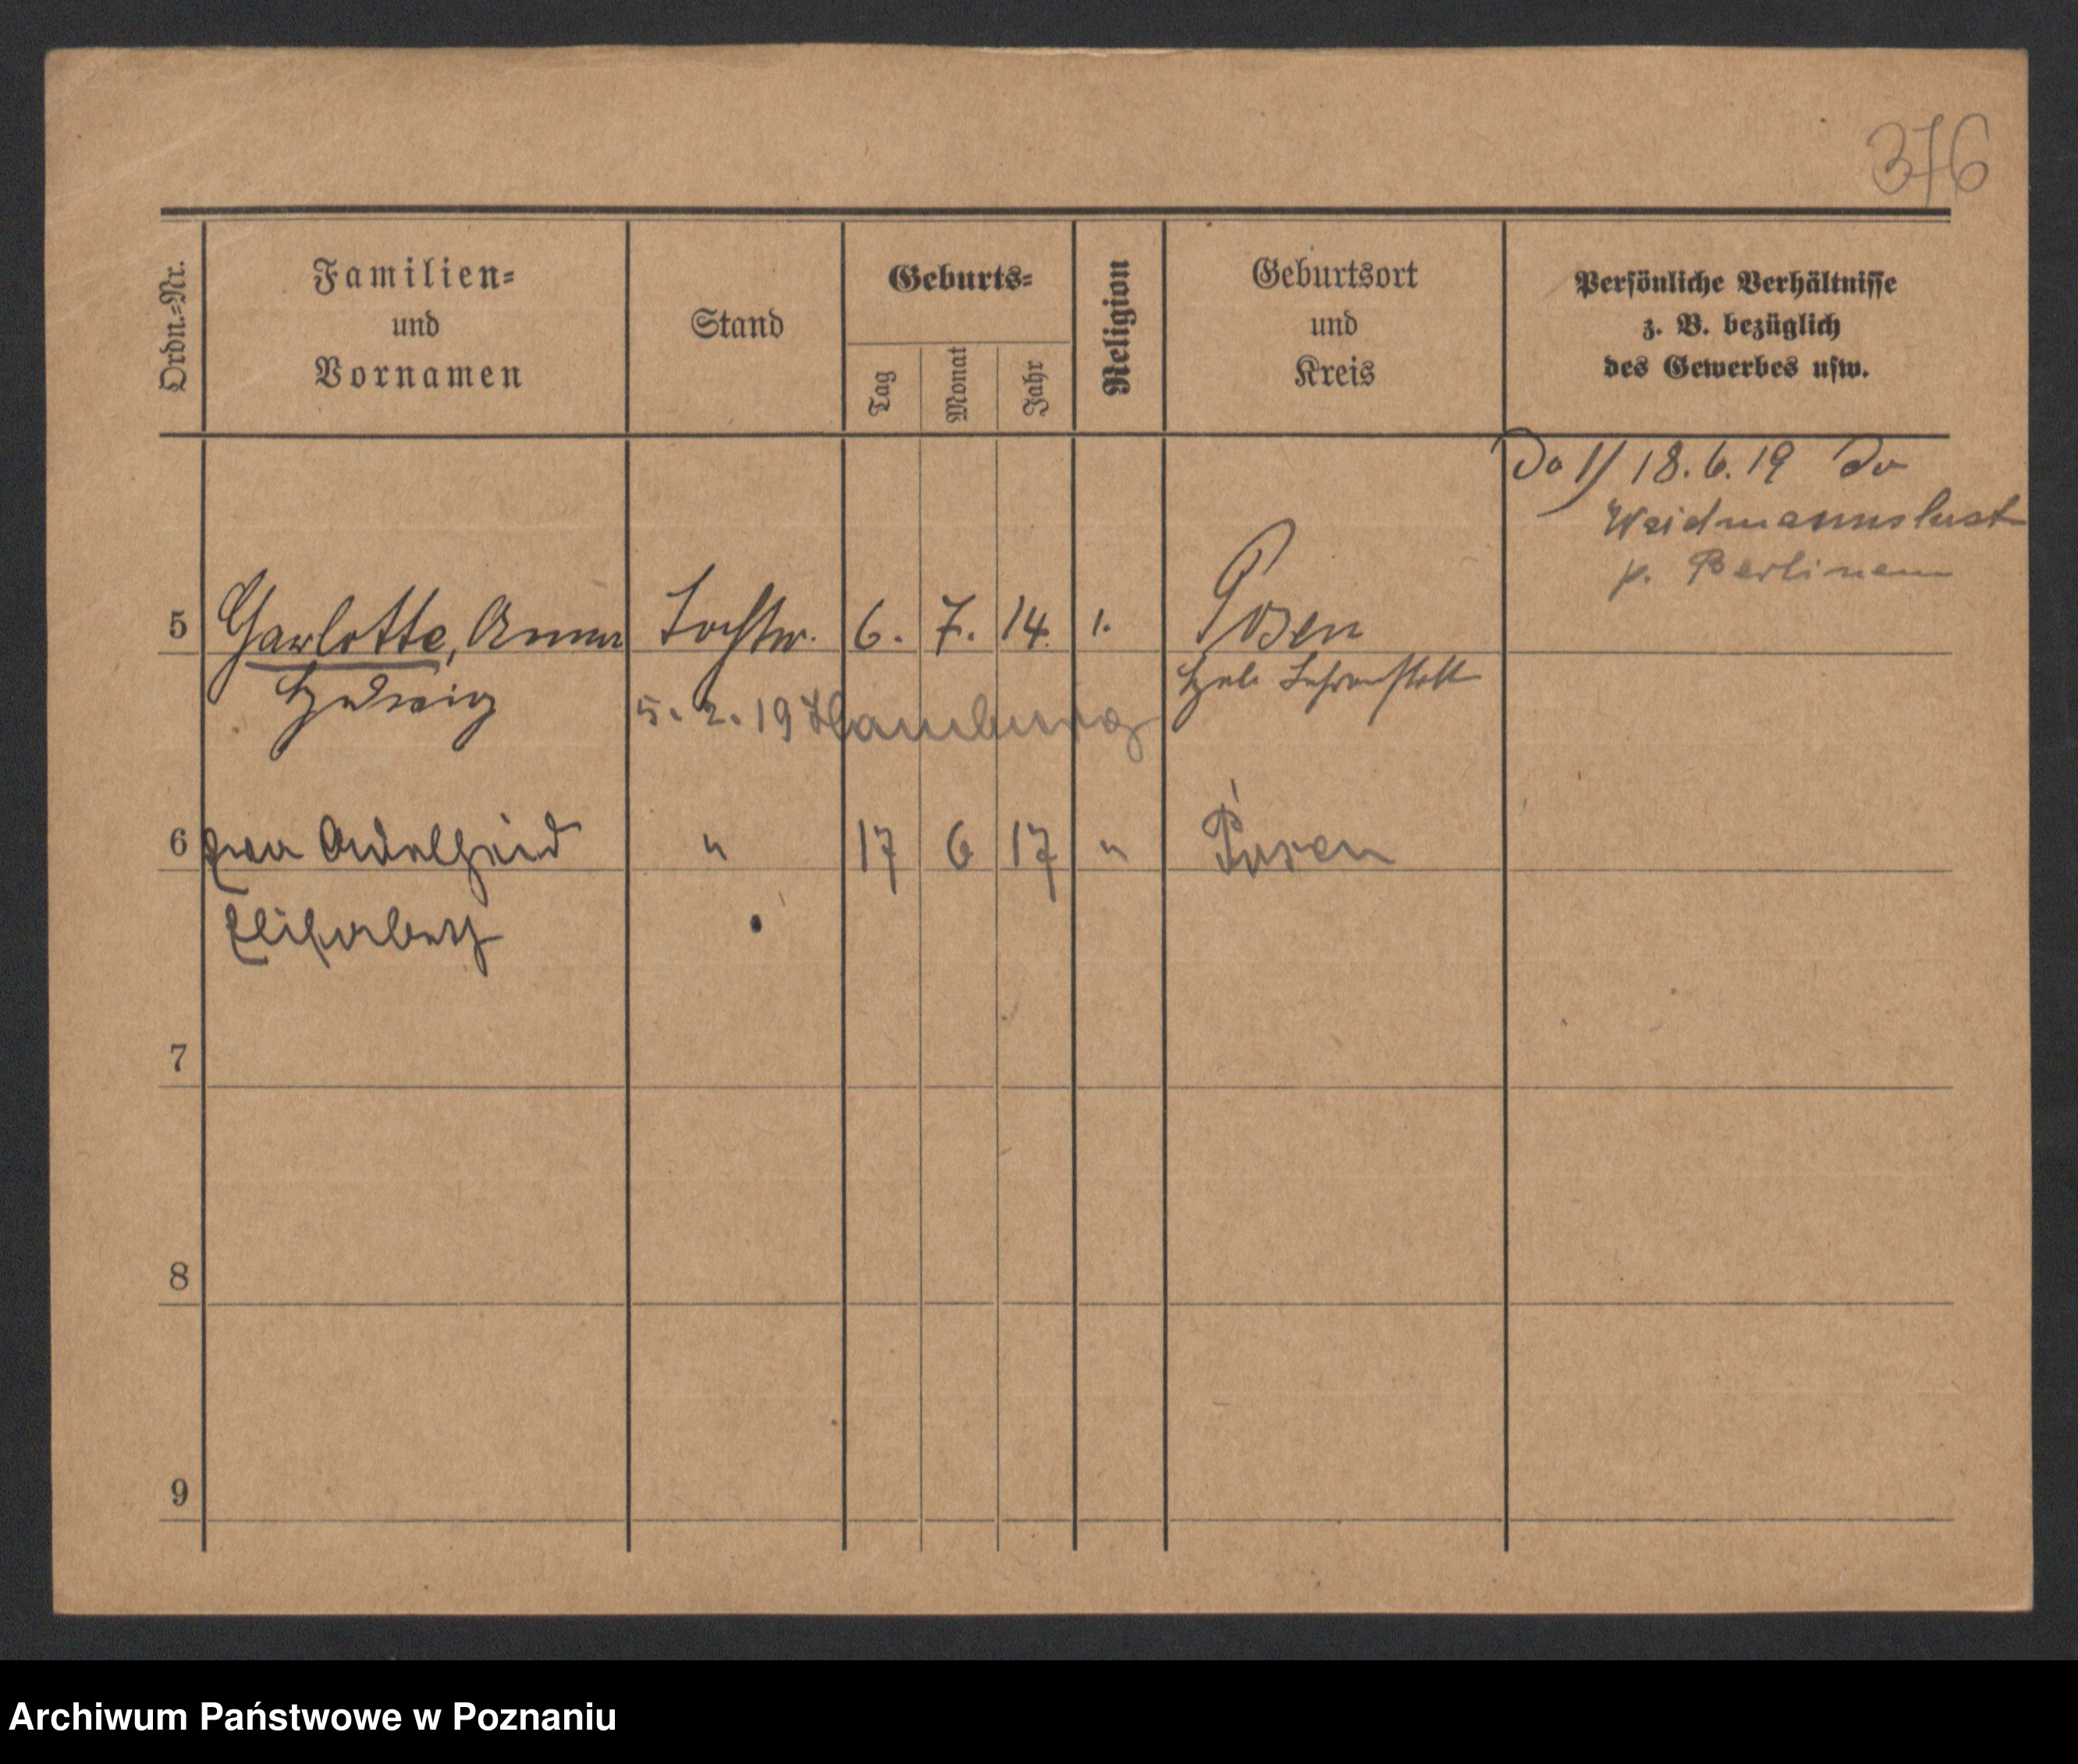 376
Ordn.-Nr.
Familien-
und
Vornamen
Stand
Geburts-
Tag
Monat
Jahr
Religion
Geburtsort
und
Kreis
Persönliche Verhältnisse
z. B. bezüglich
des Gewerbes usw.
Do 1) 18.6.19 do
Weidmannslust
p. Berlinem
5 Charlotte, Anna Tochter. 6. 7. 14. Posen
Hedwig
5. 2. 19 Hamburg
6 Eva Adelheid " 17 6 17 " Posen
Elisabeth
7
8
9
Archiwum Państwowe w Poznaniu